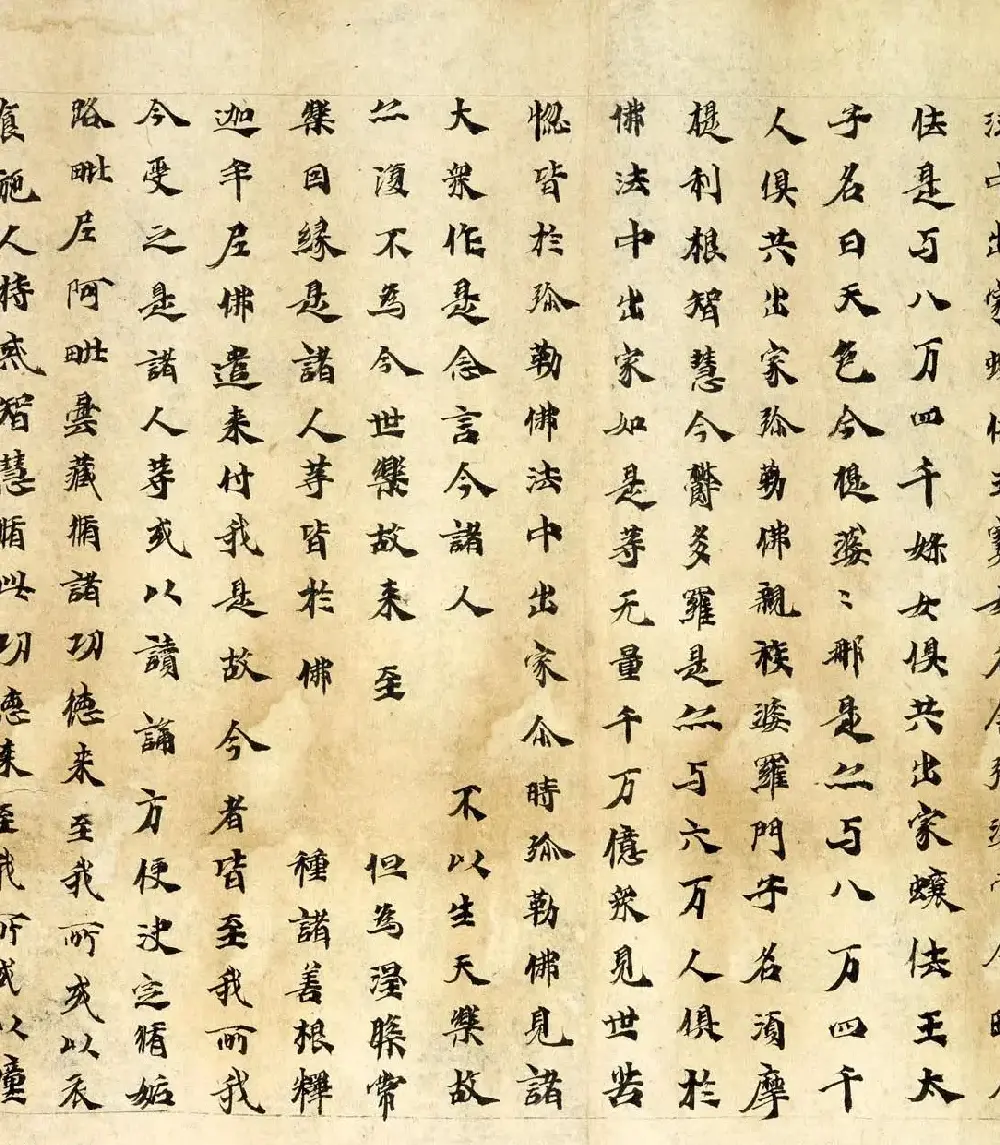 佉是与八万四千婇女俱共出家蠰佉王太
子名曰天色今提婆〻那是亦与八万四千
人俱共出家弥勒佛親族婆羅門子名須摩
提利根智慧今欝多羅是亦与六万人俱於
佛法中出家如是等无量千万億衆見世苦
惱皆於弥勒佛法中出家尒時弥勒佛見諸
大衆作是念言今諸人 不以生天樂故
亦復不為今世樂故来至 但為涅槃常
樂因縁是諸人等皆於佛 種諸善根釋
迦牟尼佛遣来付我是故今者皆至我所我
今受之是諸人等或以讀誦方便决定脩妬
路毗尼阿毗曇藏脩諸功徳来至我所或以衣
食施人持戒智慧脩此功徳来至我所或以幢